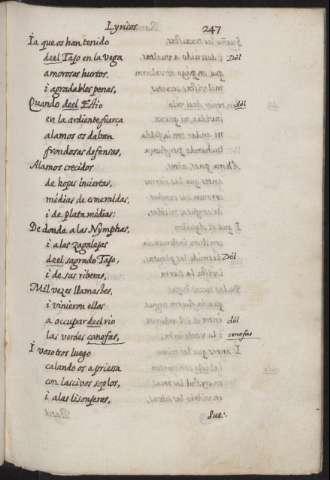 Lyricos 247
Ia que os han tenido
deel Tajo en la vega
amorosos hurtos,
i agradables penas,
Quando deel Estio
en la ardiente fuerça
alamos os daban
frondosas defensas,
Alamos crecidos
de hojas inciertas,
medias de esmeraldas,
i de plata medias:
De donde a las Nymphas,
i a las zagalejas
deel sagrado Tajo,
i de sus riberas,
Mil vezes llamastes,
i vinieron ellas
a occupar deel rio
las verdes canefas,
I vosotros luego
calando os apriessa
con lascivos soplos,
i alas lisonjeras,
Dél
dél
Dél
dél
cenefas
Sue.